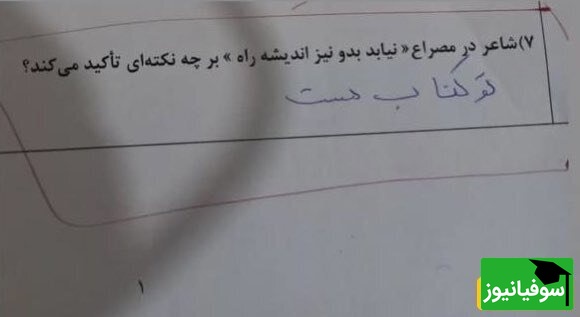 ۷) شاعر در مصراع « نیابد بدو نیز اندیشه راه » بر چه نکته‌ای تأکید می‌کند؟
تو کتاب هست
۱
سوفیانیوز